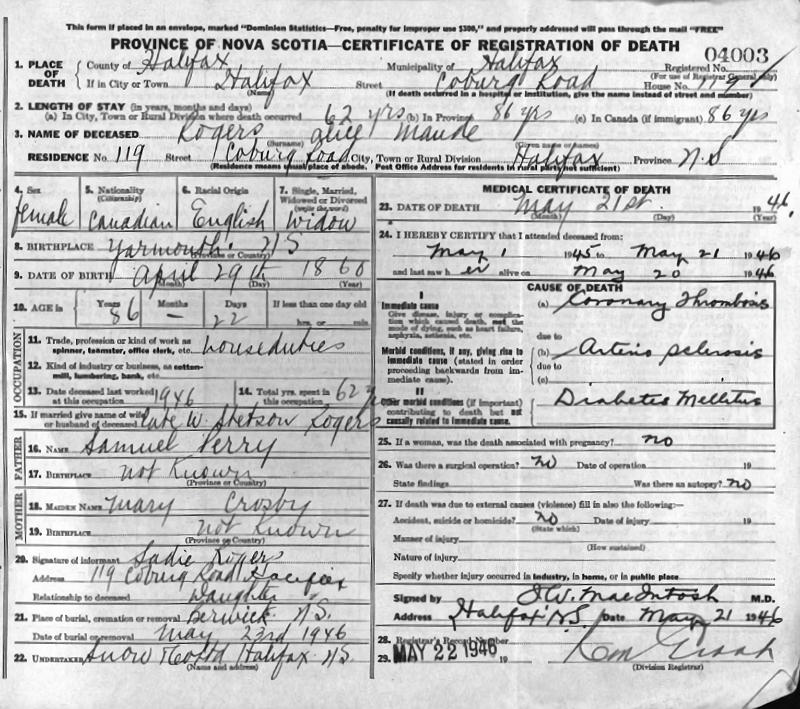 This form if placed in an envelope, marked "Dominion Statistics—Free, penalty for improper use $300," and properly addressed will pass through the mail "FREE"
PROVINCE OF NOVA SCOTIA—CERTIFICATE OF REGISTRATION OF DEATH
04003
1. PLACE OF DEATH County of Halifax Municipality of Halifax Registered No.
(For use of Registrar General only)
If in City or Town Halifax Street Coburg Road House No.
(Name) (If death occurred in a hospital or institution, give the name instead of street and number)
2. LENGTH OF STAY (in years, months and days)
(a) In City, Town or Rural Division where death occurred 62 yrs (b) In Province 86 yrs (c) In Canada (if immigrant) 86 yrs
3. NAME OF DECEASED Rogers Alice Maude
(Surname) (Given name or names)
RESIDENCE No. 119 Street Coburg Road City, Town or Rural Division Halifax Province N.S
(Residence means usual place of abode. Post Office Address for residents in rural parts not sufficient)
4. Sex 5. Nationality (Citizenship) 6. Racial Origin 7. Single, Married, Widowed or Divorced (write the word)
female Canadian English Widow
8. BIRTHPLACE Yarmouth NS
(Province or Country)
9. DATE OF BIRTH April 29th 1860
(Month) (Day) (Year)
10. AGE in Years Months Days If less than one day old
86 — 22 hrs. or min.
OCCUPATION
11. Trade, profession or kind of work as spinner, teamster, office clerk, etc. houseduties
12. Kind of industry or business, as cotton-mill, lumbering, bank, etc.
13. Date deceased last worked at this occupation 1946 14. Total yrs. spent in this occupation 62 yrs
15. If married give name of wife or husband of deceased late W. Stetson Rogers
FATHER
16. NAME Samuel Perry
17. BIRTHPLACE not Known
(Province or Country)
MOTHER
18. MAIDEN NAME Mary Crosby
19. BIRTHPLACE not Known
(Province or Country)
20. Signature of informant Sadie Rogers
Address 119 Coburg Road Halifax
Relationship to deceased Daughter
21. Place of burial, cremation or removal Berwick N.S.
Date of burial or removal May 23rd 1946
22. UNDERTAKER Snow & Co Ltd Halifax N.S.
(Name and address)
MEDICAL CERTIFICATE OF DEATH
23. DATE OF DEATH May 21st 1946.
(Month) (Day) (Year)
24. I HEREBY CERTIFY that I attended deceased from:
May 1 1945 to May 21 1946
and last saw her alive on May 20 1946
CAUSE OF DEATH
I
Immediate cause
Give disease, injury or complication which caused death, not the mode of dying, such as heart failure, asphyxia, asthenia, etc.
(a) Coronary Thrombosis
due to
Morbid conditions, if any, giving rise to immediate cause (stated in order proceeding backwards from immediate cause).
(b) Arterio sclerosis
due to
(c)
II
Other morbid conditions (if important) contributing to death but not causally related to immediate cause.
Diabetes Mellitus
25. If a woman, was the death associated with pregnancy? no
26. Was there a surgical operation? no Date of operation 19
State findings Was there an autopsy? no
27. If death was due to external causes (violence) fill in also the following:—
Accident, suicide or homicide? no Date of injury 19
(State which)
Manner of injury
(How sustained)
Nature of injury
Specify whether injury occurred in industry, in home, or in public place
Signed by W. MacIntosh M.D.
Address Halifax N.S. Date May 21 1946
28. Registrar's Record Number
29. MAY 22 1946 19
(Division Registrar)